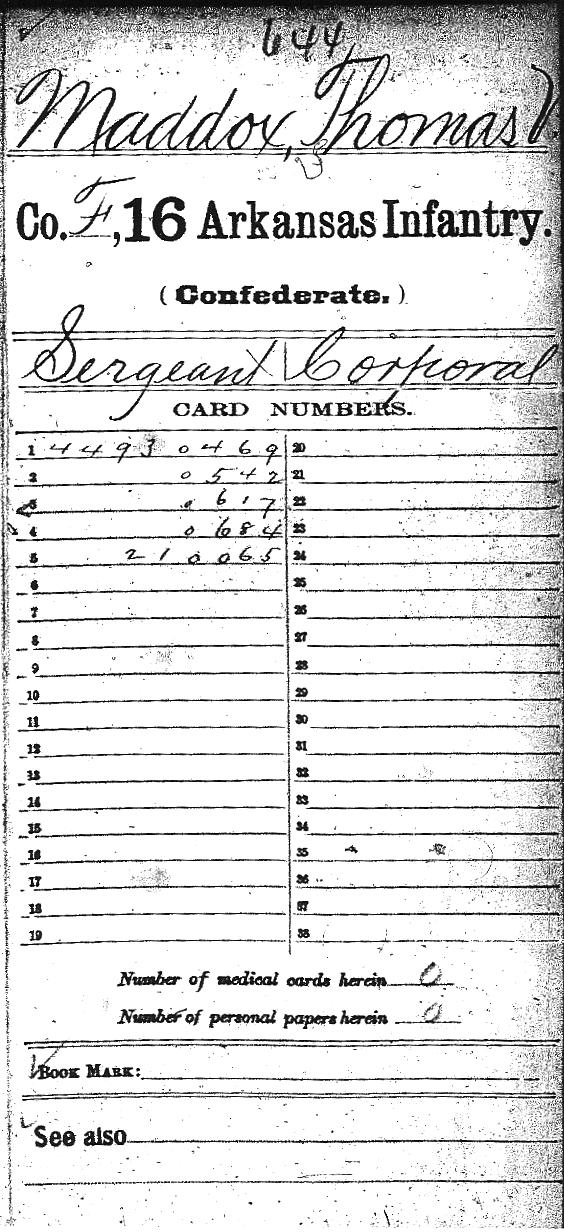 644
Maddox, Thomas V.
Co. F, 16 Arkansas Infantry.
(Confederate.)
Sergeant | Corporal
CARD NUMBERS.
1 44930469 20
2 0542 21
3 0617 22
4 0684 23
5 210065 24
6 25
7 26
8 27
9 28
10 29
11 30
12 31
13 32
14 33
15 34
16 35
17 36
18 37
19 38
Number of medical cards herein 0
Number of personal papers herein 0
BOOK MARK:
See also